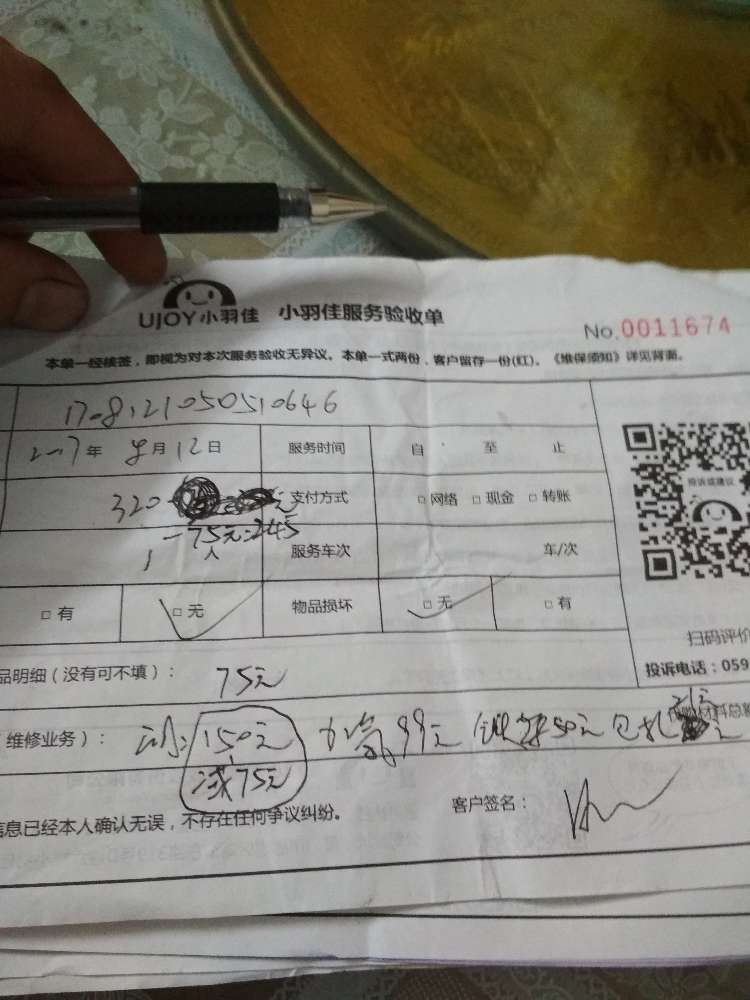 UJOY小羽佳 小羽佳服务验收单
No.0011674
本单一经核签，即视为对本次服务验收无异议。本单一式两份，客户留存一份(红)。《维保须知》详见背面。
1708121050510646
2017年 8月12日 服务时间 自 至 止
320 元 支付方式 □网络 □现金 □转账
-75元=245
1 人 服务车次 车/次
□有 □无 物品损坏 □无 □有
投诉或建议
扫码评价
品明细（没有可不填）： 75元
投诉电话：059
维修业务）： 150元 加氟99元 50元 包扎 元
减75元
材料总
信息已经本人确认无误，不存在任何争议纠纷。 客户签名：